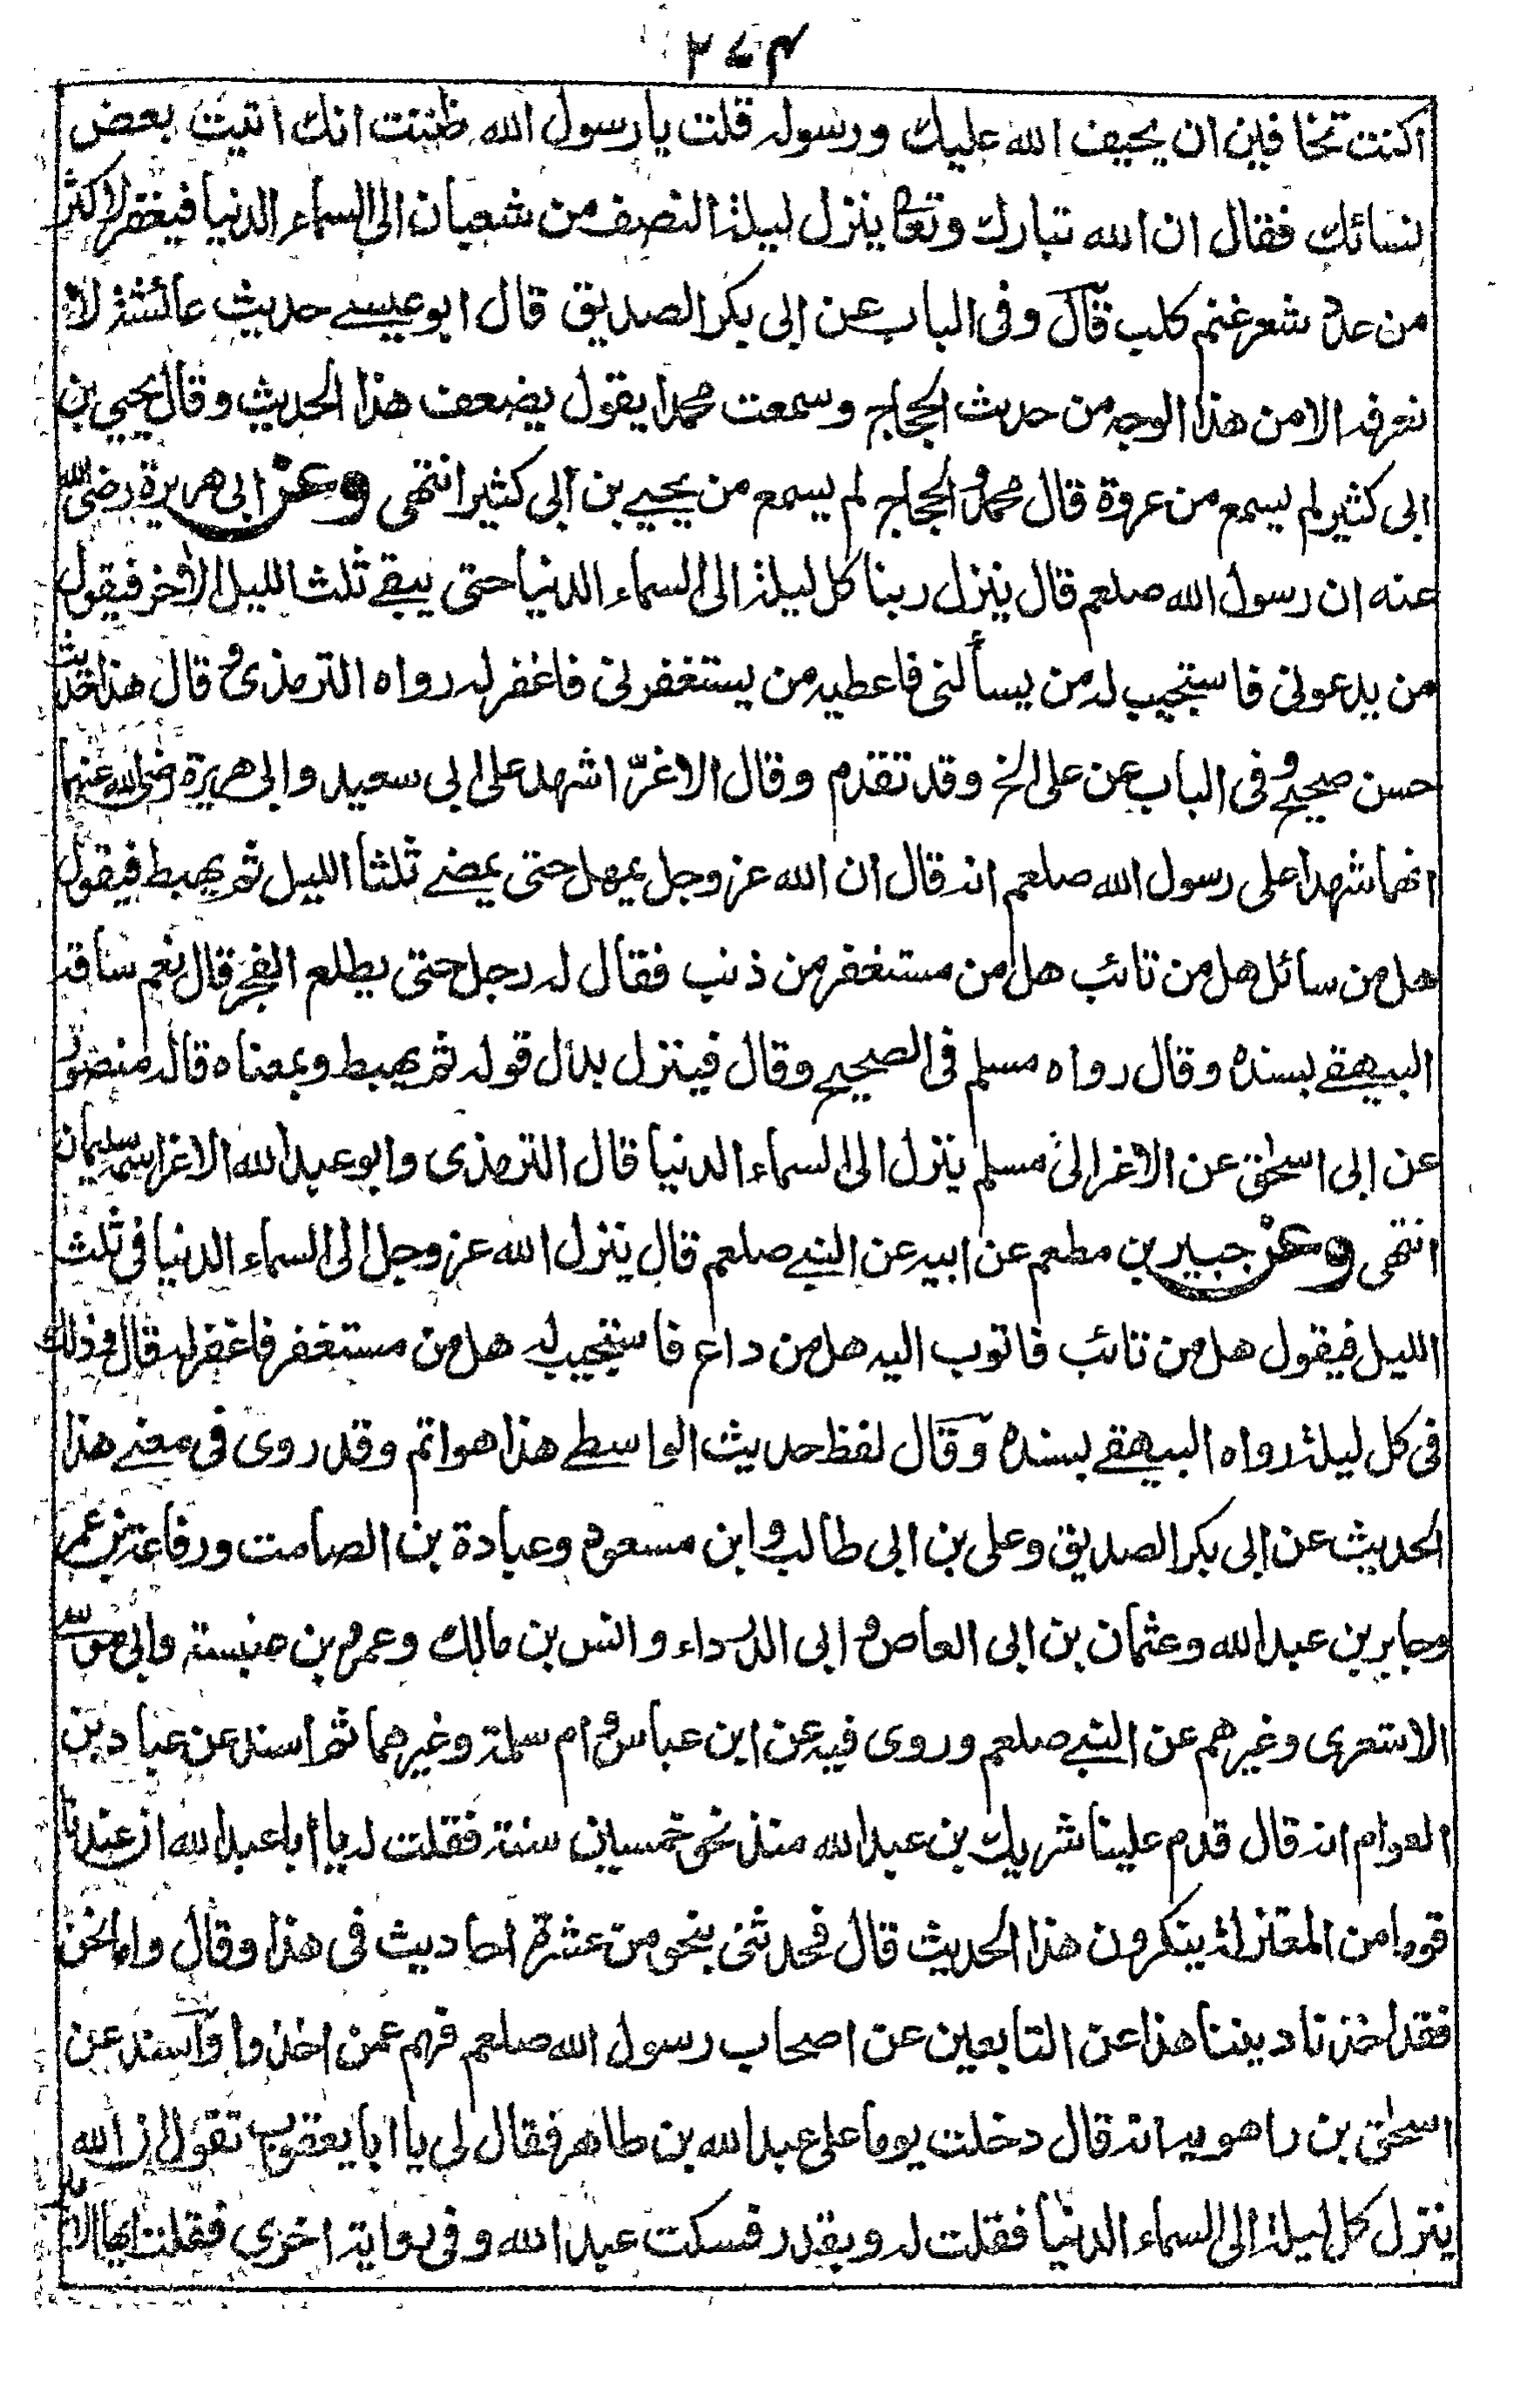 ٢٧٤
اكنت تخافين ان يحيف الله عليك ورسوله قلت يا رسول الله ظننت انك اتيت بعض
نسائك فقال ان الله تبارك وتعا ينزل ليلة النصف من شعبان الى السماء الدنيا فيغفر لاكثر
من عدد شعر غنم كلب قال وفى الباب عن ابى بكر الصديق قال ابو عيسے حديث عائشة لا
نعرفه الا من هذا الوجه من حديث الحجاج وسمعت محمدا يقول يضعف هذا الحديث وقال يحيى بن
ابى كثير لم يسمع من عروة قال محمد والحجاج لم يسمع من يحيے بن ابى كثير انتهى وعن ابى هريرة رضى الله
عنه ان رسول الله صلعم قال ينزل ربنا كل ليلة الى السماء الدنيا حتى يبقے ثلث الليل الاخر فيقول
من يدعونى فاستجيب له من يسألنى فاعطيه من يستغفرنى فاغفر له رواه الترمذى وقال هذا حديث
حسن صحيح وفى الباب عن على الخ وقد تقدم وقال الاغرّ اشهد على ابى سعيد وابى هريرة رضى الله عنهما
انهما شهدا على رسول الله صلعم انه قال ان الله عز وجل يمهل حتى يمضے ثلثا الليل ثم يهبط فيقول
هل من سائل هل من تائب هل من مستغفر من ذنب فقال له رجل حتى يطلع الفجر قال نعم ساقه
البيهقے بسنده وقال رواه مسلم فى الصحيح وقال فينزل بدل قوله ثم يهبط وبمعناه قاله منصور
عن ابى اسحٰق عن الاغر ابى مسلم ينزل الى السماء الدنيا قال الترمذى وابو عبد الله الاغر اسمه سليمان
انتهى وعن جبير بن مطعم عن ابيه عن النبے صلعم قال ينزل الله عز وجل الى السماء الدنيا فى ثلث
الليل فيقول هل من تائب فاتوب اليه هل من داع فاستجيب له هل من مستغفر فاغفر له قال وذلك
فى كل ليلة رواه البيهقے بسنده وقال لفظ حديث الواسطے هذا هو اتم وقد روى فى معنے هذا
الحديث عن ابى بكر الصديق وعلى بن ابى طالب وابن مسعود وعبادة بن الصامت ورفاعة بن عمر
وجابر بن عبد الله وعثمان بن ابى العاص وابى الدرداء وانس بن مالك وعمرو بن عنبسة وابى موسے
الاشعرى وغيرهم عن النبے صلعم وروى فيه عن ابن عباس وام سلمة وغيرهما ثم اسند عن عباد بن
العوام انه قال قدم علينا شريك بن عبد الله منذ نحو خمسين سنة فقلت له يا ابا عبد الله ان عندنا
قوما من المعتزلة ينكرون هذا الحديث قال فحدثنى بنحو من عشرة احاديث فى هذا وقال واما نحن
فقد اخذنا ديننا هذا عن التابعين عن اصحاب رسول الله صلعم فهم عمن اخذوا وآسند عن
اسحٰق بن راهويه انه قال دخلت يوما على عبد الله بن طاهر فقال لى يا ابا يعقوب تقول ان الله
ينزل كل ليلة الى السماء الدنيا فقلت له ويقدر فسكت عبد الله وفى رواية اخرى فقلت ايها الامير